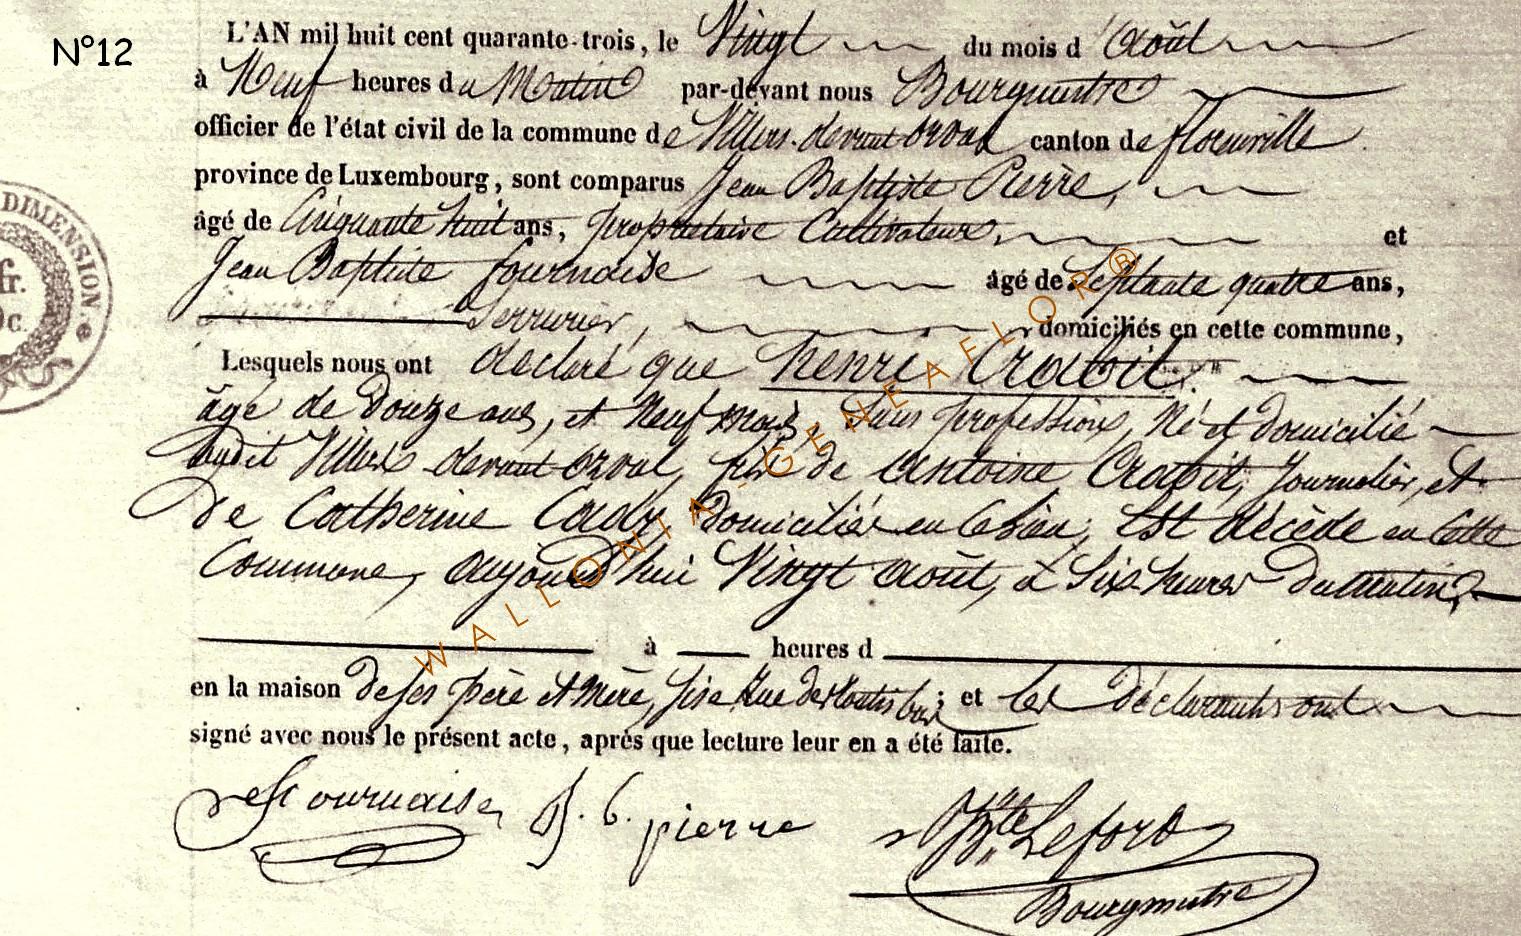 N°12
L'AN mil huit cent quarante-trois, le Vingt du mois d'Août
à Neuf heures du Matin par-devant nous Bourgmestre
officier de l'état civil de la commune de Villers-devant-Orval canton de florenville
province de Luxembourg, sont comparus Jean Baptiste Pierre,
âgé de Cinquante huit ans, propriétaire Cultivateur, et
Jean Baptiste fournaise âgé de Septante quatre ans,
Serrurier, domiciliés en cette commune,
Lesquels nous ont déclaré que henri Crabit.
âgé de Douze ans, et Neuf mois, Sans profession, Né et domicilié
audit Villers-devant-Orval, fils de Antoine Crabit, Journalier, et
de Catherine Cady, domiciliés en ce lieu, Est décédé en Cette
Commune, aujourd'hui Vingt août, à Six heures du matin,
à heures d
en la maison de ses père et Mère, sise Rue des ; et les déclarants ont
signé avec nous le présent acte, après que lecture leur en a été faite.
fournaise J. b. pierre Bte Leford
Bourgmestre
DIMENSION.
fr.
c.
WALLONIA-GENEAFLOR®